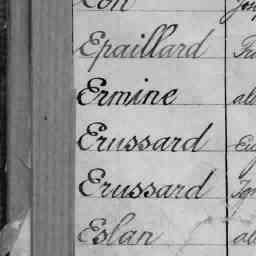 Epaillard
Ermine
Erussard
Erussard
Eslan